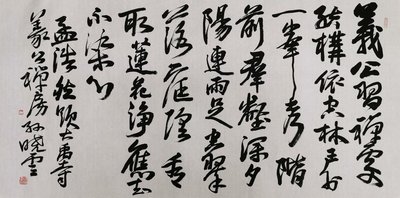 義公習禪處
結構依空林戶外
一峯秀階
前群壑深夕
陽連雨足空翠
落庭陰看
取蓮花淨應知
不染心
孟浩然題大禹寺
義公禪房孫曉雲